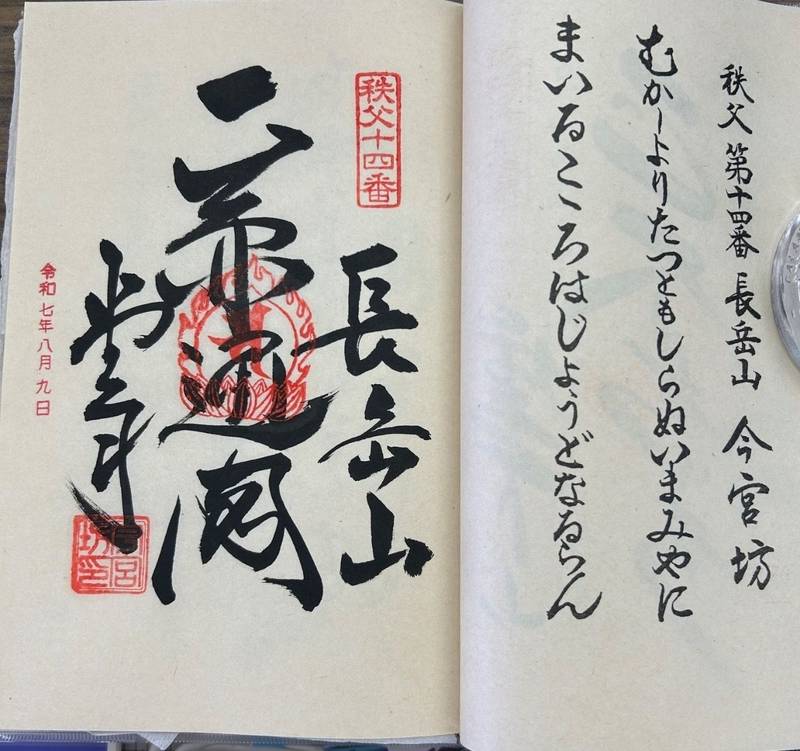 秩父 第十四番 長岳山 今宮坊
むかしよりたつともしらぬいまみやに
まいるこころはじようどなるらん
秩父十四番
長岳山
通閣
令和七年八月九日